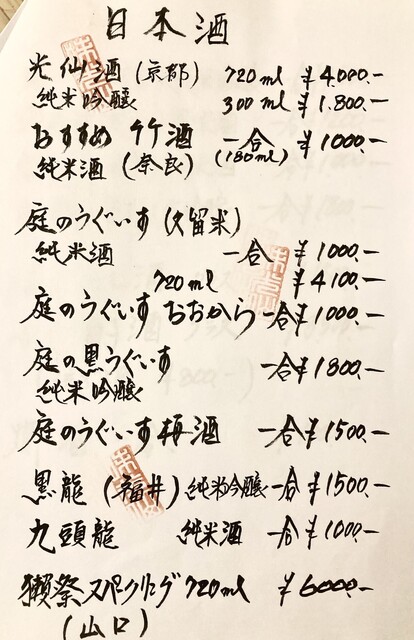 日本酒
光仙酒 (京都) 720ml ¥4,000.-
純米吟醸 300ml ¥1.800.-
おすすめ 竹酒 一合 ¥1000.-
純米酒 (奈良) (180ml)
庭のうぐいす (久留米)
純米酒 一合 ¥1000.-
720ml ¥4100.-
庭のうぐいす おおから 一合 ¥1000.-
庭の黒うぐいす 一合 ¥1800.-
純米吟醸
庭のうぐいす梅酒 一合 ¥1500.-
黒龍 (福井) 純米吟醸 一合 ¥1500.-
九頭龍 純米酒 一合 ¥1000.-
獺祭 スパークリング 720ml ¥6000.-
(山口)